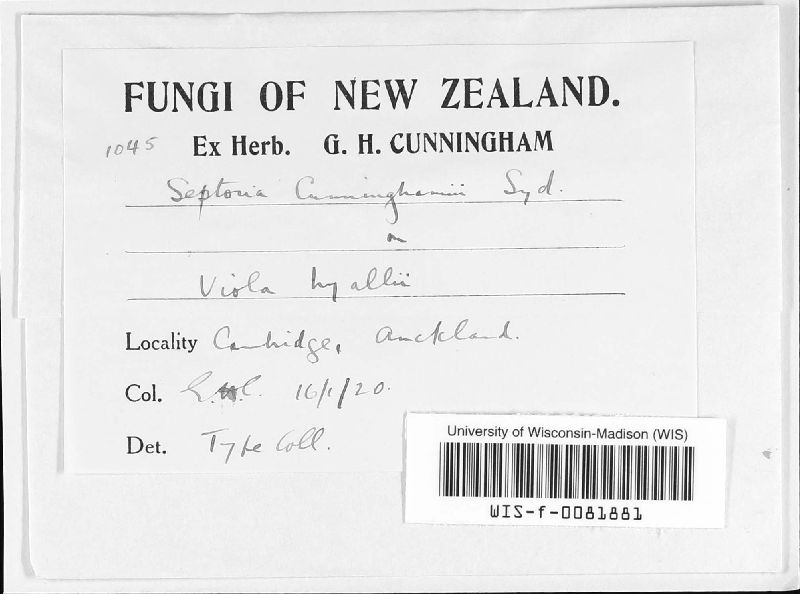 FUNGI OF NEW ZEALAND.
1045 Ex Herb. G. H. CUNNINGHAM
Septoria Cunninghamii Syd.
on
Viola lyallii
Locality Cambridge, Auckland.
Col. G.H.C. 16/1/20.
Det. Type Coll.
University of Wisconsin-Madison (WIS)
WIS-f-0081881